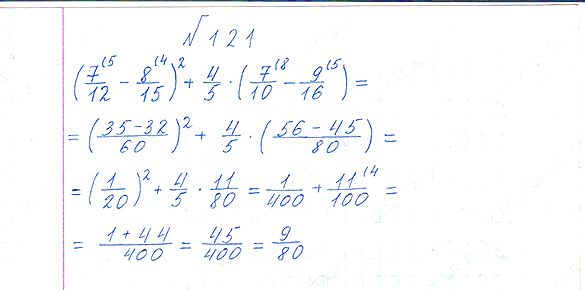 №121
(7⁽⁵/12 − 8⁽⁴/15)² + 4/5 · (7⁽⁸/10 − 9⁽⁵/16) =
= (35−32/60)² + 4/5 · (56−45/80) =
= (1/20)² + 4/5 · 11/80 = 1/400 + 11⁽⁴/100 =
= 1+44/400 = 45/400 = 9/80